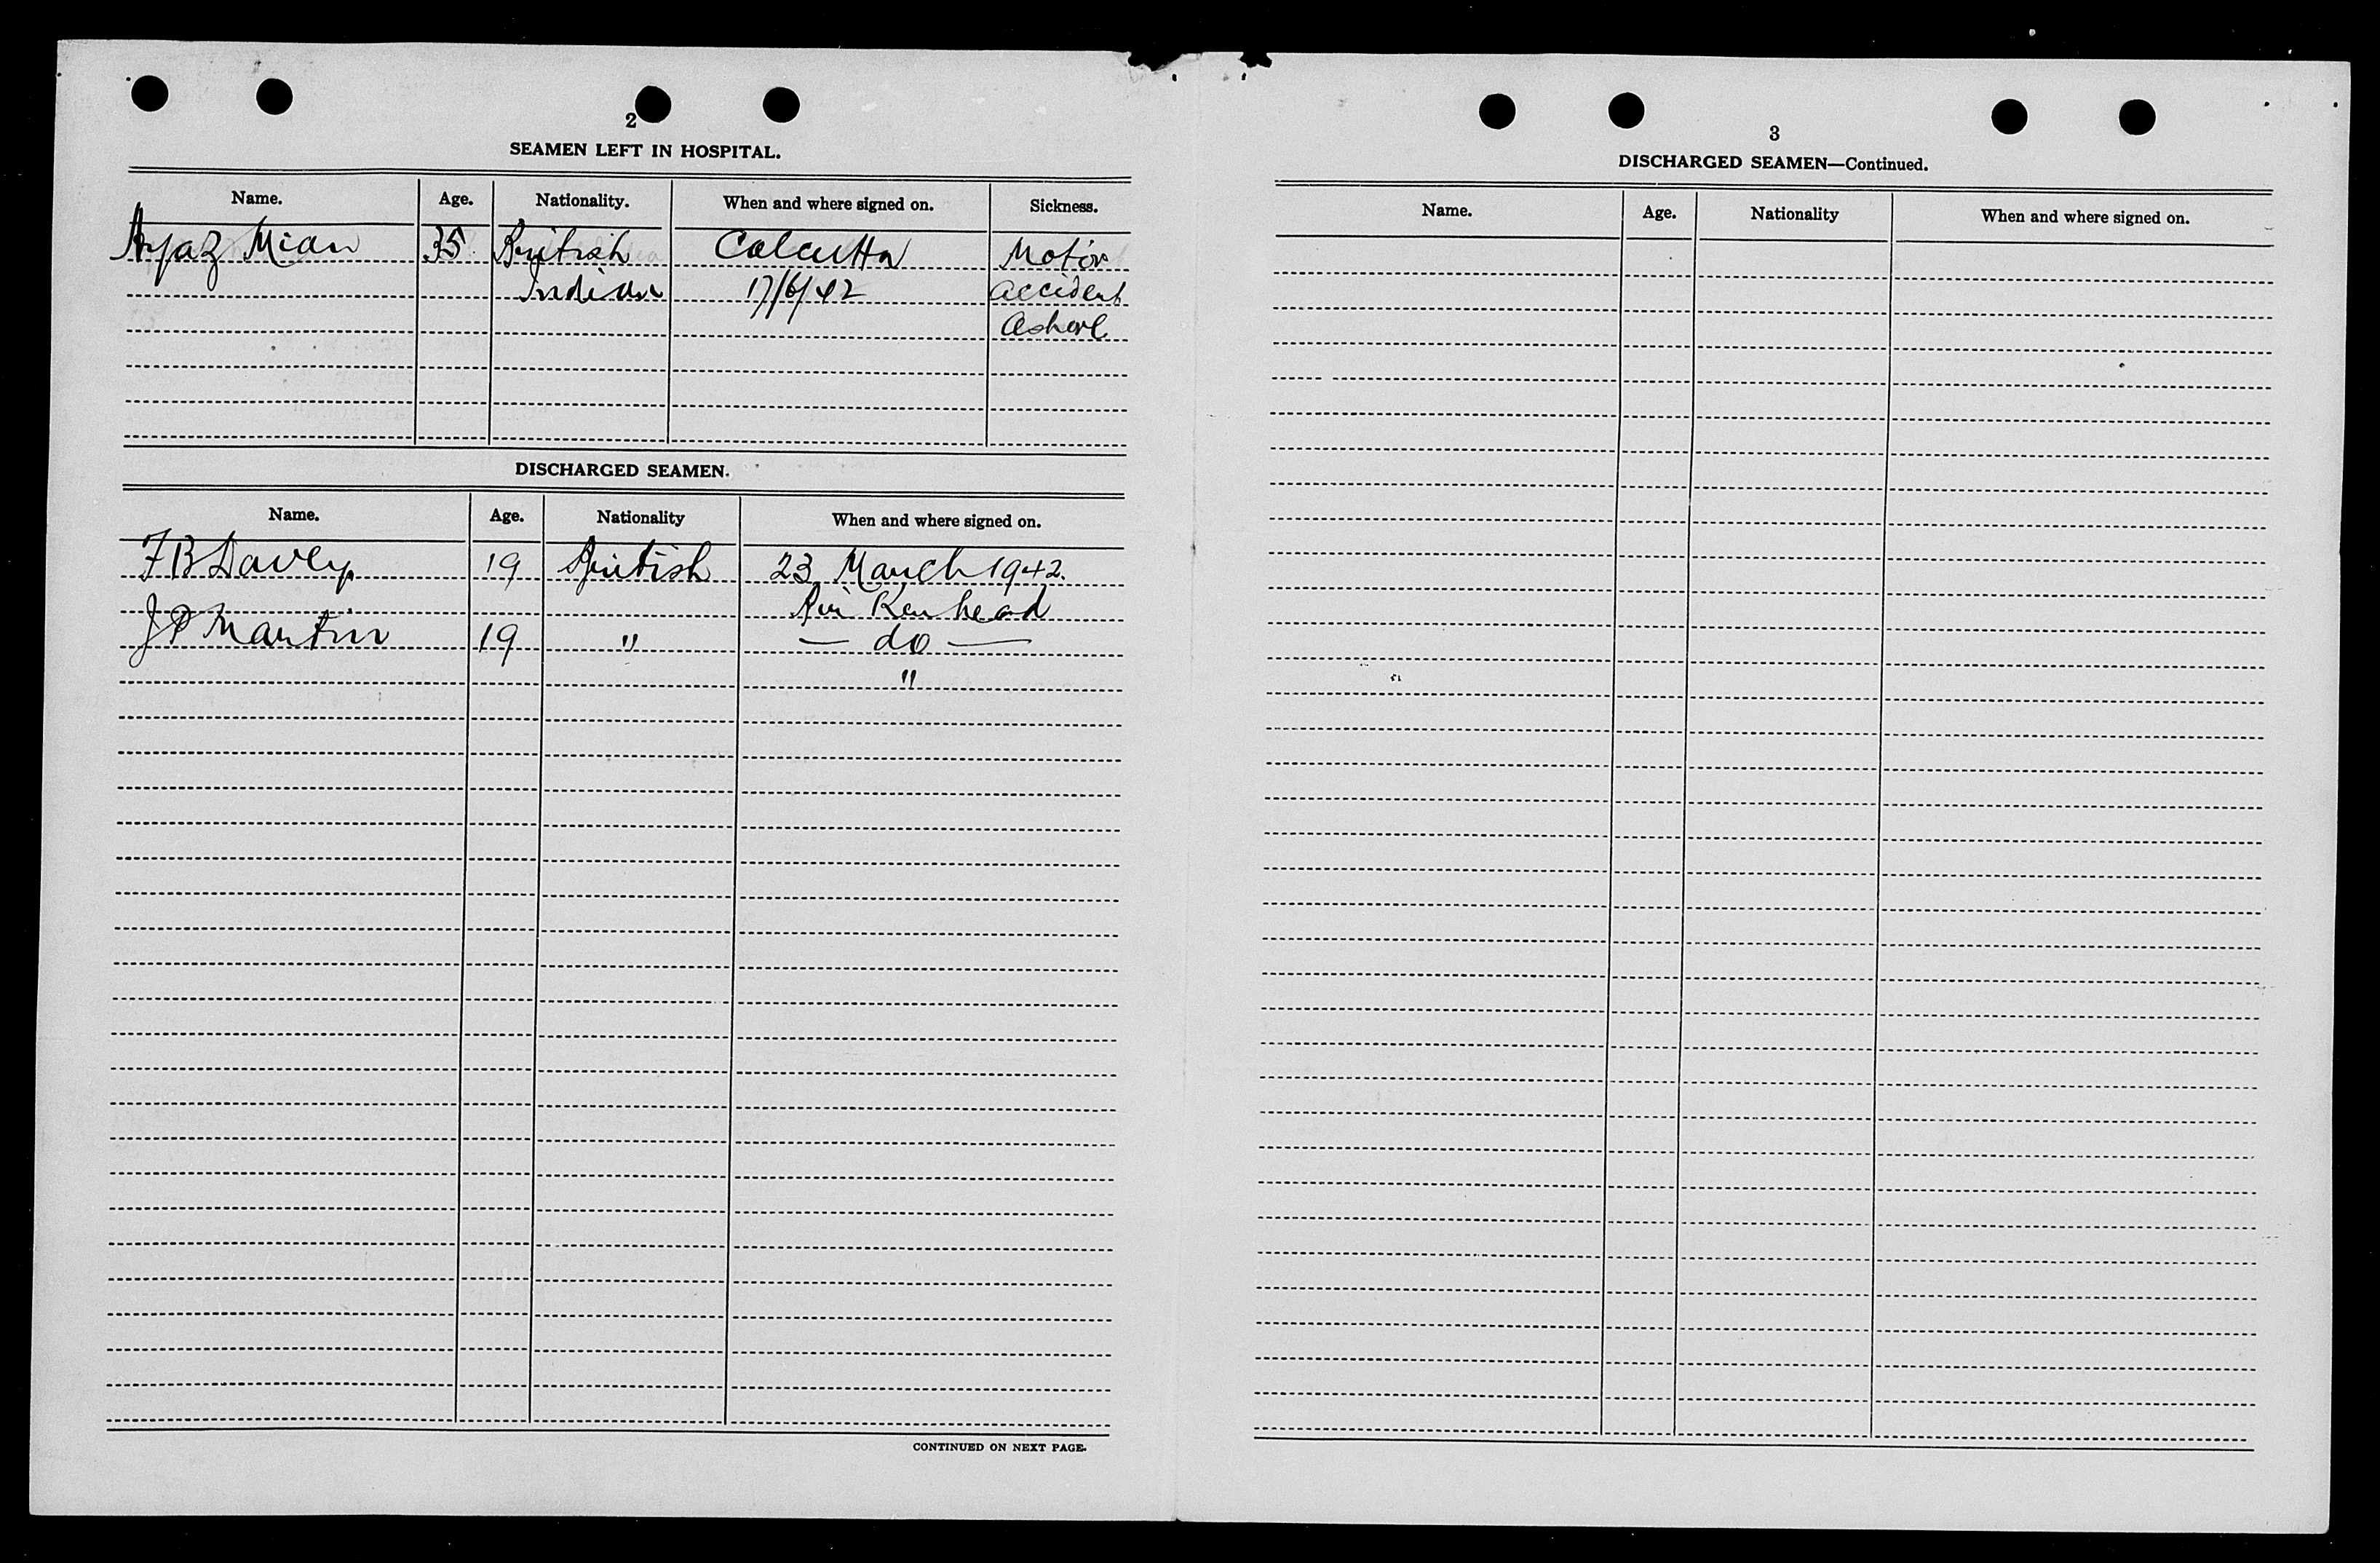 2
SEAMEN LEFT IN HOSPITAL.
Name. Age. Nationality. When and where signed on. Sickness.
Ayaz Mian 35 British Calcutta Motor
Indian 17/6/42 accident
Ashore
DISCHARGED SEAMEN.
Name. Age. Nationality When and where signed on.
F B Davey 19 British 23 March 1942.
Birkenhead
J P Martin 19 " — do —
"
CONTINUED ON NEXT PAGE.
3
DISCHARGED SEAMEN—Continued.
Name. Age. Nationality When and where signed on.